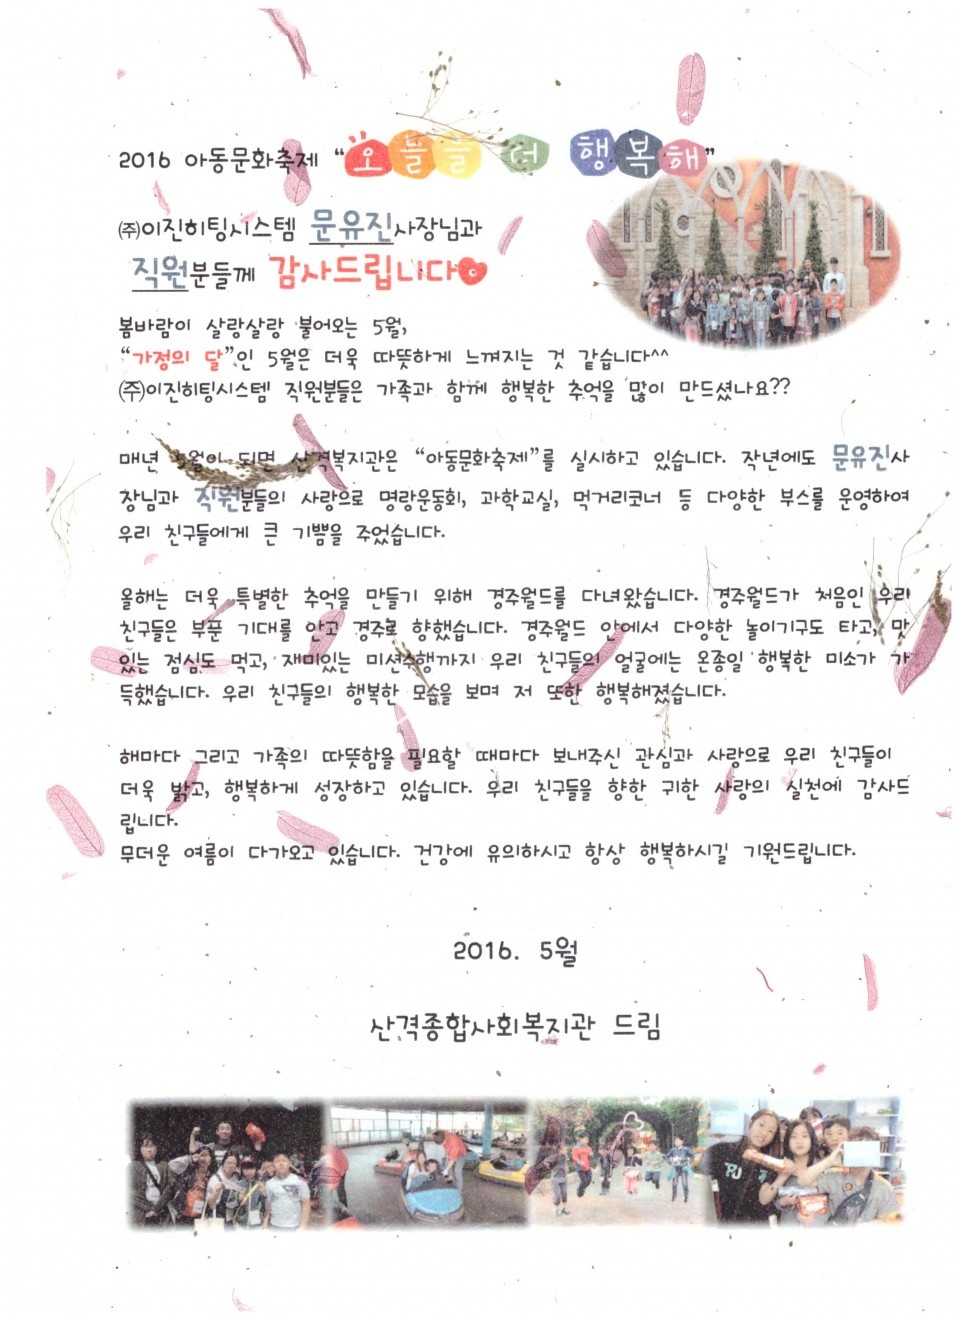 2016 아동문화축제 “오늘들 더 행복해”
㈜이진히팅시스템 문유진사장님과
직원분들께 감사드립니다
봄바람이 살랑살랑 불어오는 5월,
“가정의 달”인 5월은 더욱 따뜻하게 느껴지는 것 같습니다^^
㈜이진히팅시스템 직원분들은 가족과 함께 행복한 추억을 많이 만드셨나요??
매년 5월이 되면 산격복지관은 “아동문화축제”를 실시하고 있습니다. 작년에도 문유진사
장님과 직원분들의 사랑으로 명랑운동회, 과학교실, 먹거리코너 등 다양한 부스를 운영하여
우리 친구들에게 큰 기쁨을 주었습니다.
올해는 더욱 특별한 추억을 만들기 위해 경주월드를 다녀왔습니다. 경주월드가 처음인 우리
친구들은 부푼 기대를 안고 경주로 향했습니다. 경주월드 안에서 다양한 놀이기구도 타고, 맛
있는 점심도 먹고, 재미있는 미션수행까지 우리 친구들의 얼굴에는 온종일 행복한 미소가 가
득했습니다. 우리 친구들의 행복한 모습을 보며 저 또한 행복해졌습니다.
해마다 그리고 가족의 따뜻함을 필요할 때마다 보내주신 관심과 사랑으로 우리 친구들이
더욱 밝고, 행복하게 성장하고 있습니다. 우리 친구들을 향한 귀한 사랑의 실천에 감사드
립니다.
무더운 여름이 다가오고 있습니다. 건강에 유의하시고 항상 행복하시길 기원드립니다.
2016. 5월
산격종합사회복지관 드림